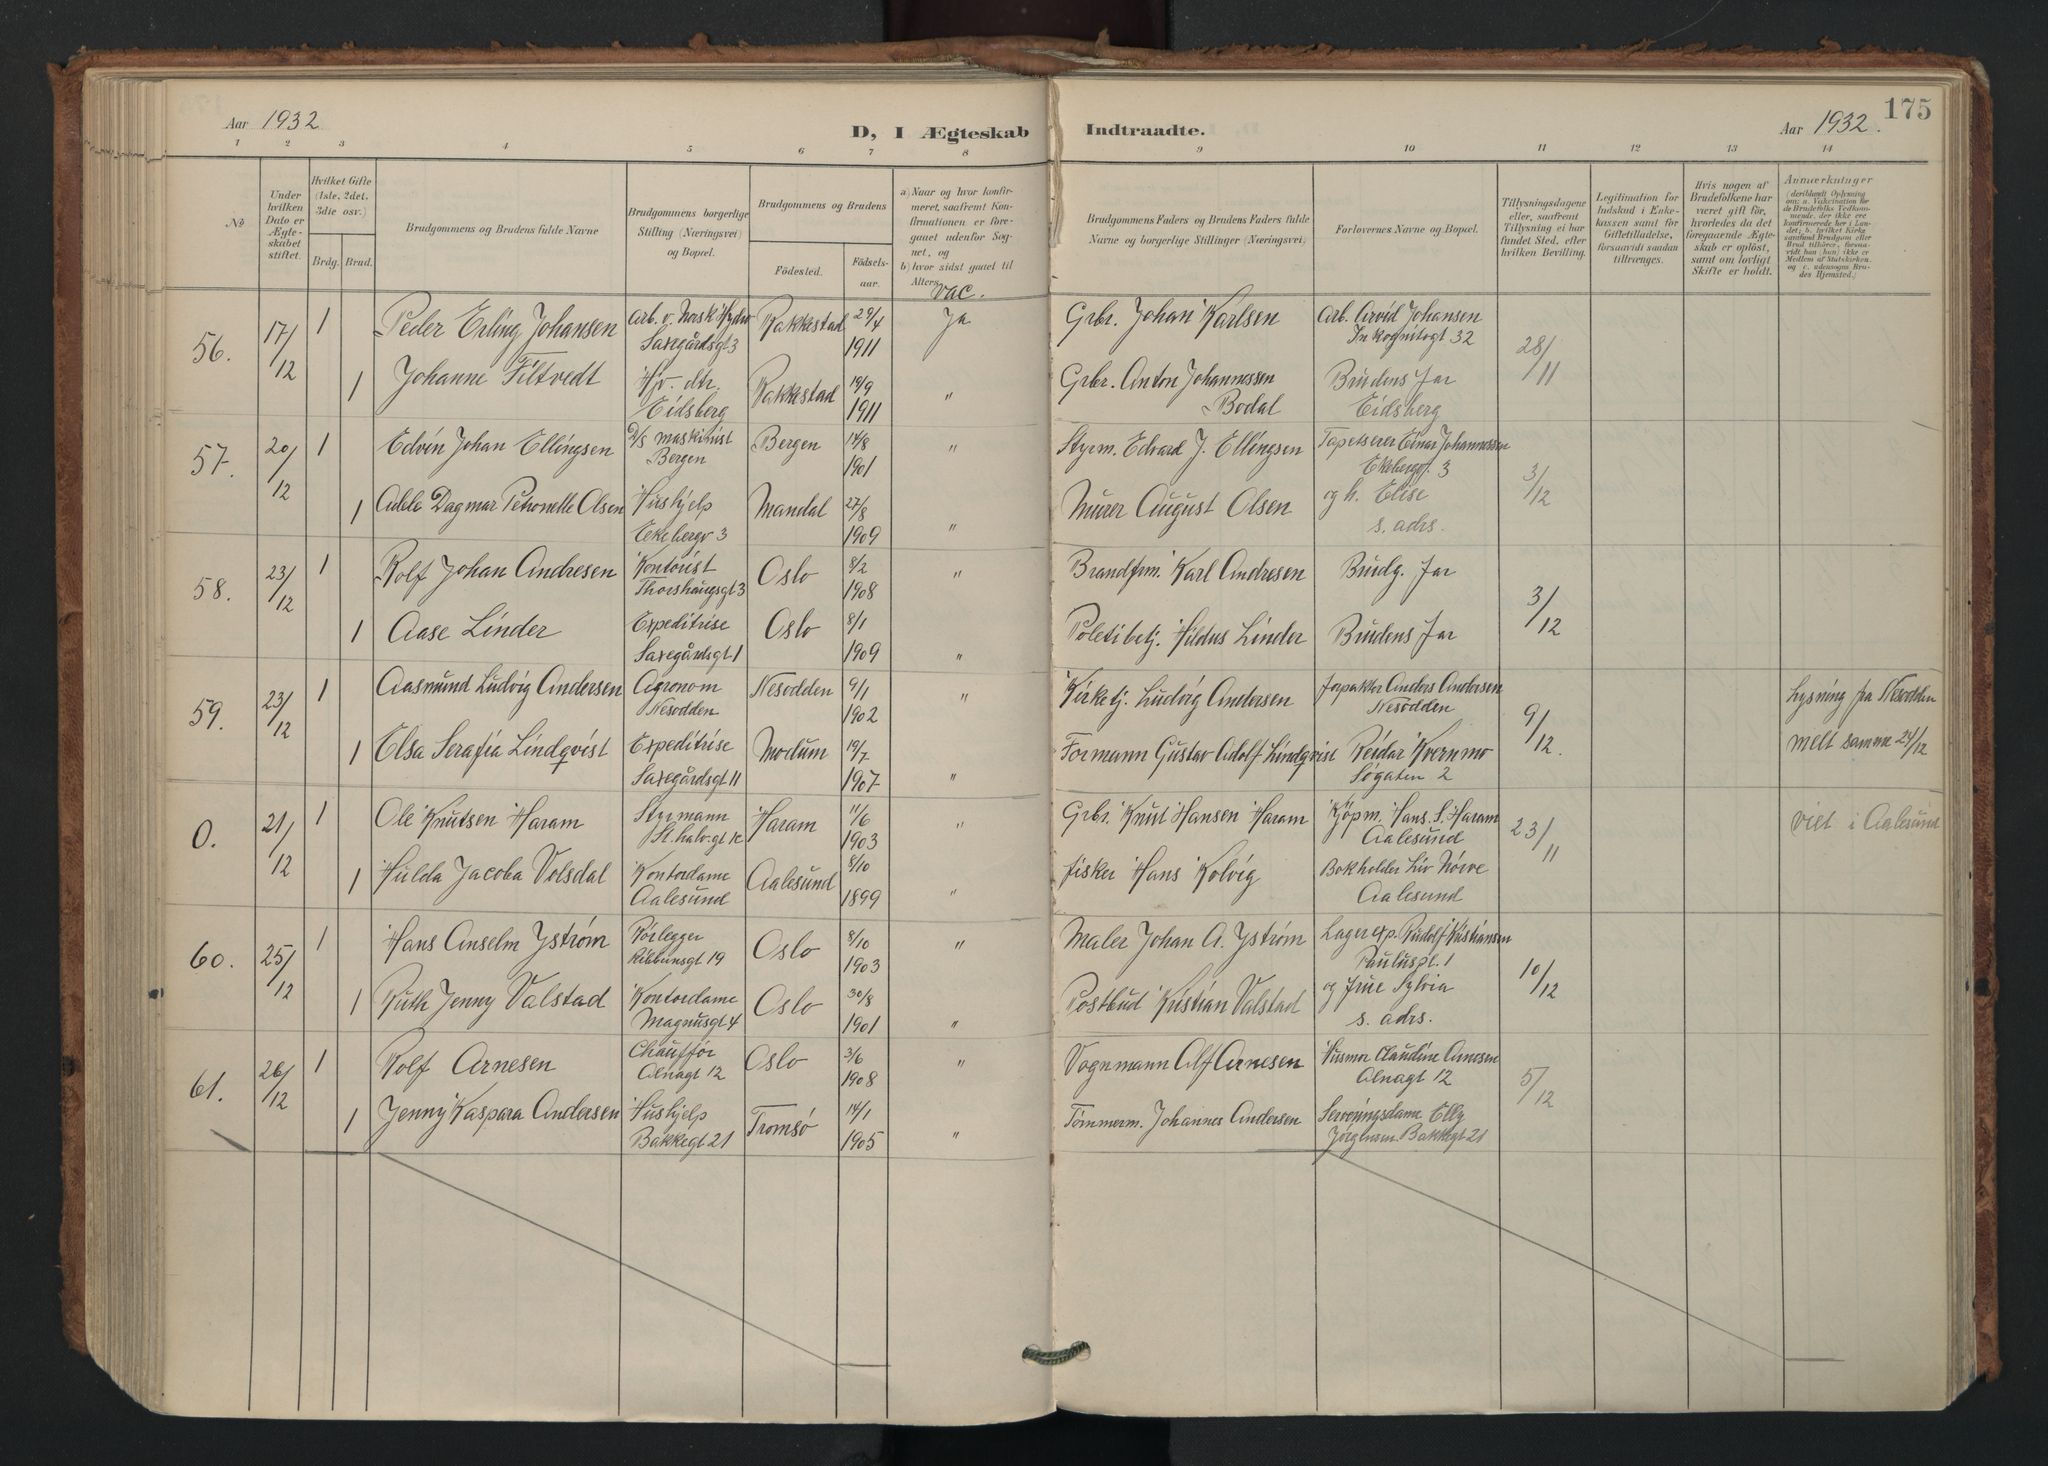 Aar 1932
D, I Ægteskab
Indtraadte.
Aar 1932.
175
1 2 3 4 5 6 7 8 9 10 11 12 13 14
№
Under hvilken Dato er Ægteskabet stiftet.
Hvilket Gifte (1ste, 2det, 3die osv.)
Brdg. Brud.
Brudgommens og Brudens fulde Navne
Brudgommens borgerlige Stilling (Næringsvei) og Bopæl.
Brudgommens og Brudens
Födested.
Födselsaar.
a) Naar og hvor konfirmeret, saafremt Konfirmationen er foregaaet udenfor Sognet, og
b) hvor sidst gaaet til Alters.
vac.
Brudgommens Faders og Brudens Faders fulde Navne og borgerlige Stillinger (Næringsvei)
Forlovernes Navne og Bopæl.
Tillysningsdagene eller, saafremt Tillysning ei har fundet Sted, efter hvilken Bevilling.
Legitimation for Indskud i Enkekassen samt for Giftetilladelse, forsaavidt saadan tiltrænges.
Hvis nogen af Brudefolkene har været gift för, hvorledes da det foregaaende Ægteskab er oplöst, samt om lovligt Skifte er holdt.
Anmærkninger
(deriblandt Oplysning om: a. Vakcination for de Brudefolks Vedkommende, der ikke ere konfirmerede her i Landet; b. hvilket Kirkesamfund Brudgom eller Brud tilhörer, forsaavidt han (hun) ikke er Medlem af Statskirken, og c. udensogns Brudes Hjemsted.)
56. 17/12 1 Peder Erling Johansen Arb. v. Norsk Hydro Saxegårdsgt 3 Rakkestad 29/4 1911 Ja Grbr. Johan Karlsen Arb. Arvid Johansen Inkognitogt 32 28/11
1 Johanne Filtvedt Hjv. dtr. Eidsberg Rakkestad 19/9 1911 " Grbr. Anton Johannessen Bodal Brudens Far Eidsberg
57. 20/12 1 Edvin Johan Ellingsen D/S maskinist Bergen Bergen 14/8 1901 " Styrm. Edvard J. Ellingsen Tapetserer Einar Johannessen Ekebergv. 3 3/12
1 Adele Dagmar Petronelle Olsen Hushjelp Ekebergv 3 Mandal 27/8 1909 " Murer August Olsen og h. Elise s. adrs.
58. 23/12 1 Rolf Johan Andresen Kontorist Thorshaugsgt 3 Oslo 8/2 1908 " Brandfm. Karl Andresen Brudg. Far 3/12
1 Aase Linder Expeditrise Saxegårdsgt 1 Oslo 8/1 1909 " Politibetj. Hildus Linder Brudens Far
59. 23/12 1 Aasmund Ludvig Andersen Agronom Nesodden Nesodden 9/1 1902 " Kirketj. Ludvig Andersen Forpakter Anders Andersen Nesodden 9/12. Lysning fra Nesodden
1 Elsa Serafia Lindqvist Expeditrise Saxegårdsgt 11 Modum 19/7 1907 " Formann Gustav Adolf Lindqvist Reidar Kvernmo Søgaten 2 melt samme 24/12
0. 21/12 1 Ole Knutsen Haram Styrmann St. halv.gt Haram 11/6 1903 " Grbr. Knut Hansen Haram Kjöpm. Hans. S. Haram Aalesund 23/11 viet i Aalesund
1 Hilda Jacoba Volsdal Kontordame Aalesund Aalesund 8/10 1899 " fisker Hans Kolvig Bokholder Liv Nörve Aalesund
60. 25/12 1 Hans Anselm Ystrøm Rørlegger Ribbunsgt 19 Oslo 8/10 1903 " Maler Johan A. Ystrøm Lagerexp. Rudolf Kristiansen Pauluspl. 1 10/12
1 Ruth Jenny Valstad Kontordame Magnusgt 4 Oslo 30/8 1901 " Postbud Kristian Valstad og frue Sylvia s. adrs.
61. 26/12 1 Rolf Arnesen Chauffør Alnagt 12 Oslo 3/6 1908 " Vognmann Alf Arnesen Husmor Claudine Arnesen Alnagt 12 5/12
1 Jenny Kaspara Andersen Hushjelp Bakkegt 21 Tromsø 14/1 1905 " Tömmerm. Johannes Andersen Serveringsdame Elly Jörgensen Bakkegt 21